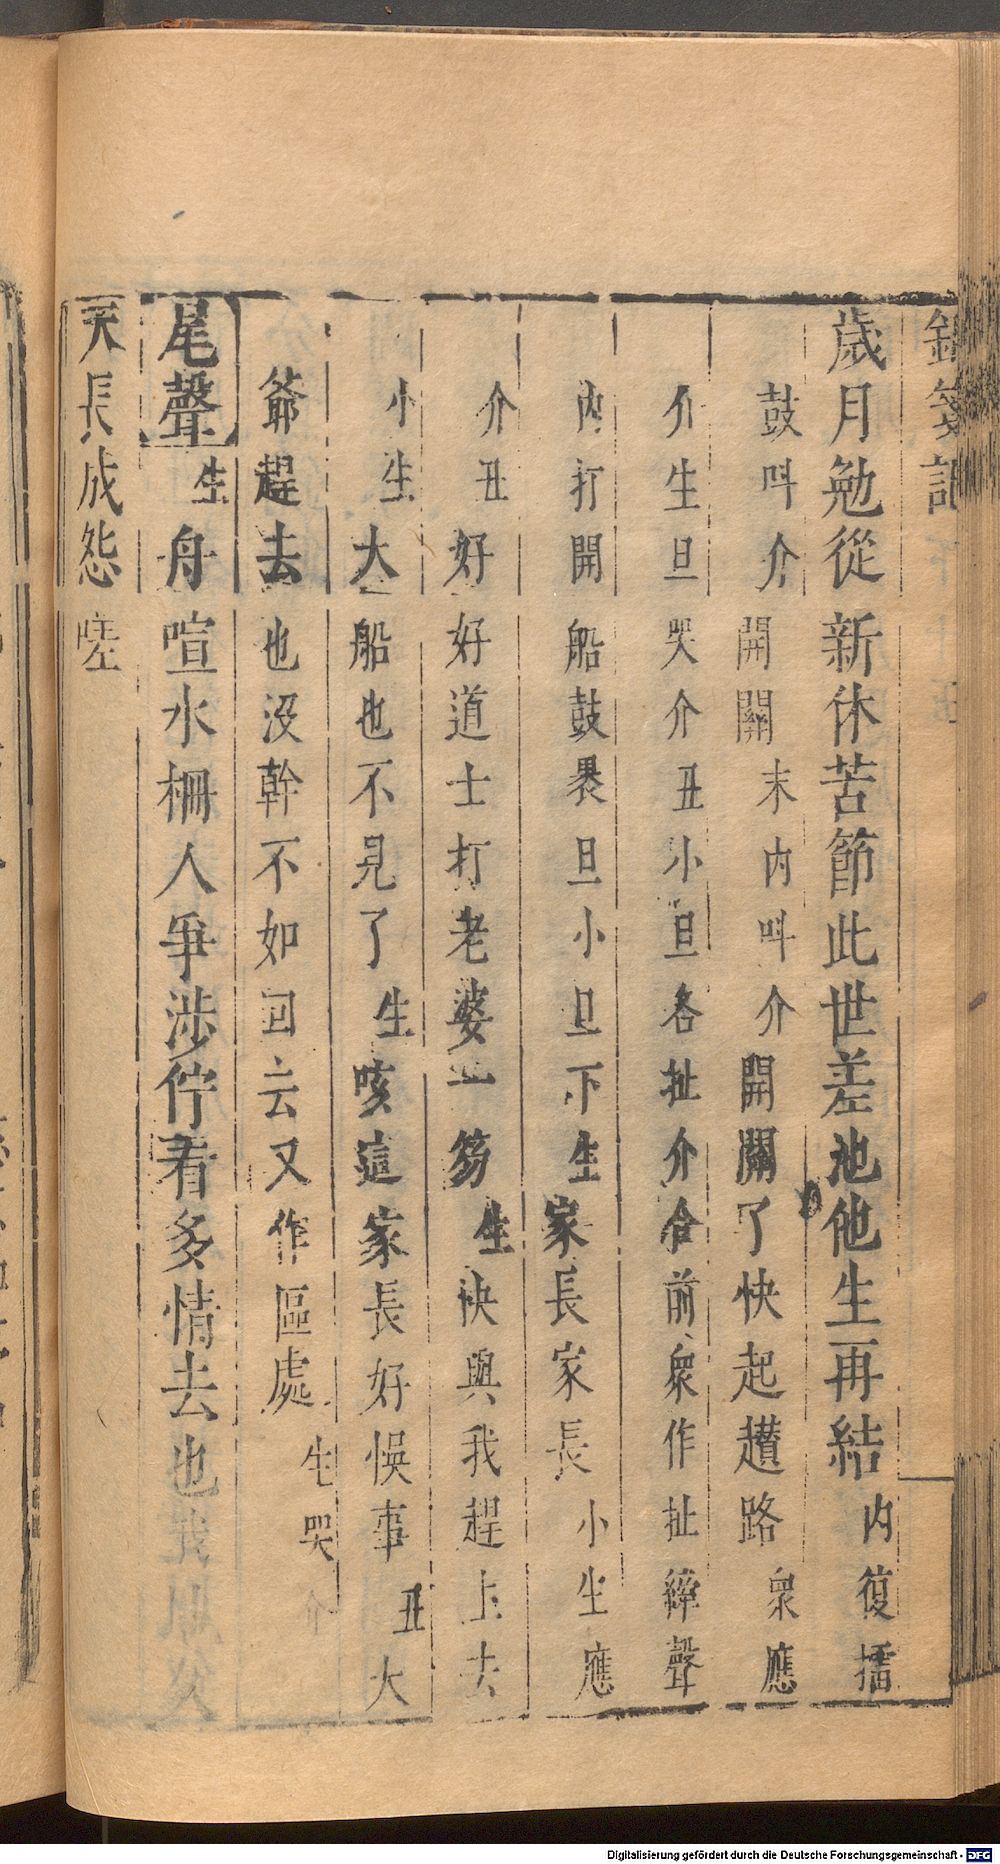 歲月勉從新休苦節此世差池他生再結內復擂
鼓呌介開關末內呌介開關了快起趲路衆應
介生旦哭介丑小旦各扯介合前衆作扯縴聲
內打開船鼓畏旦小旦下生家長家長小生應
介丑好好道士打老婆一笏生快與我趕上去
小生大船也不見了生咳這家長好悞事丑大
爺趕去也没幹不如回去又作區處生哭介
尾聲生舟喧水柵人爭涉佇看多情去也
天長成怨嗟
Digitalisierung gefördert durch die Deutsche Forschungsgemeinschaft - DFG